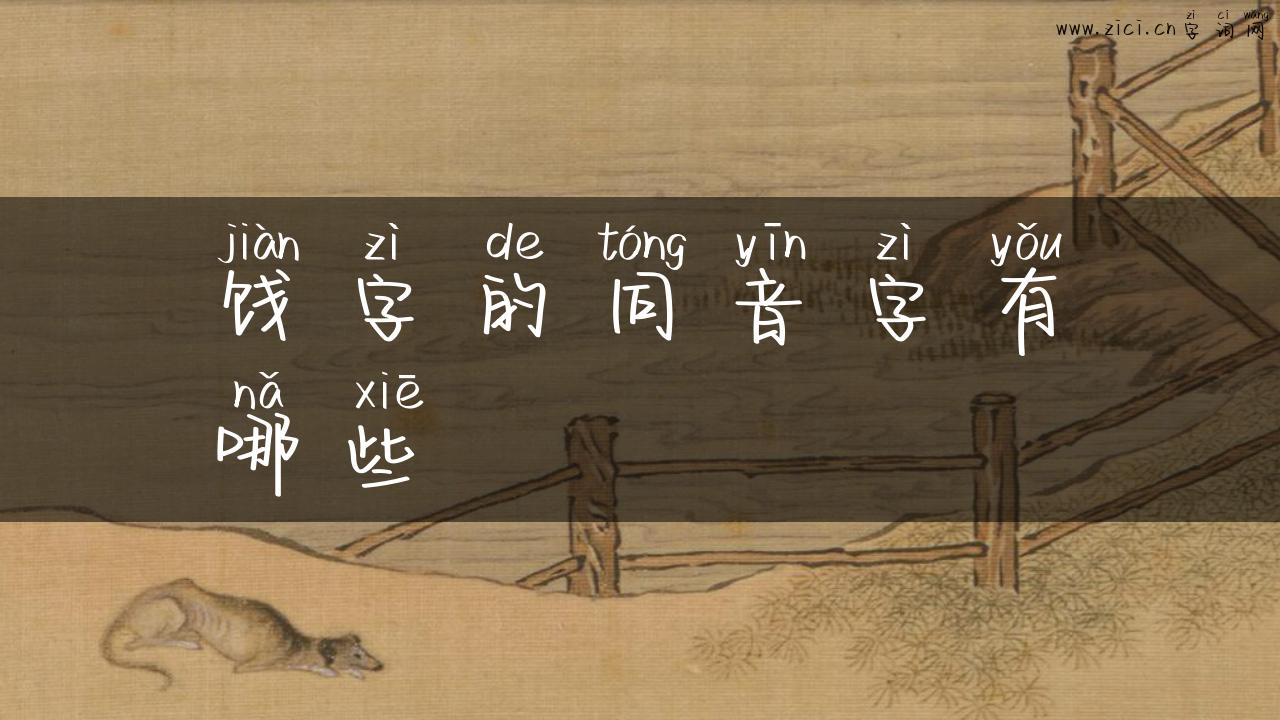 zì cí wǎng
www.zici.cn 字词网
jiàn zì de tóng yīn zì yǒu
饯字的同音字有
nǎ xiē
哪些